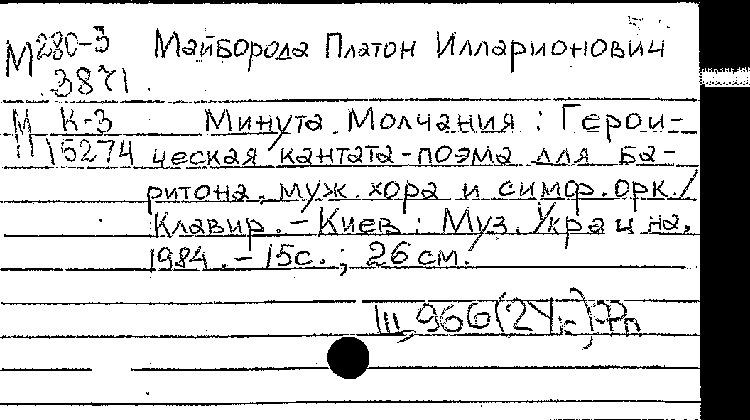 М280-3 Майборода Платон Илларионович
3871
М К-3 Минута Молчания : Герои-
15274 ческая кантата-поэма для ба-
ритона, муж. хора и симф. орк./
Клавир. – Киев : Муз. Украина,
1984. – 15с. ; 26 см.
Ш, 966(2Ук)Фп